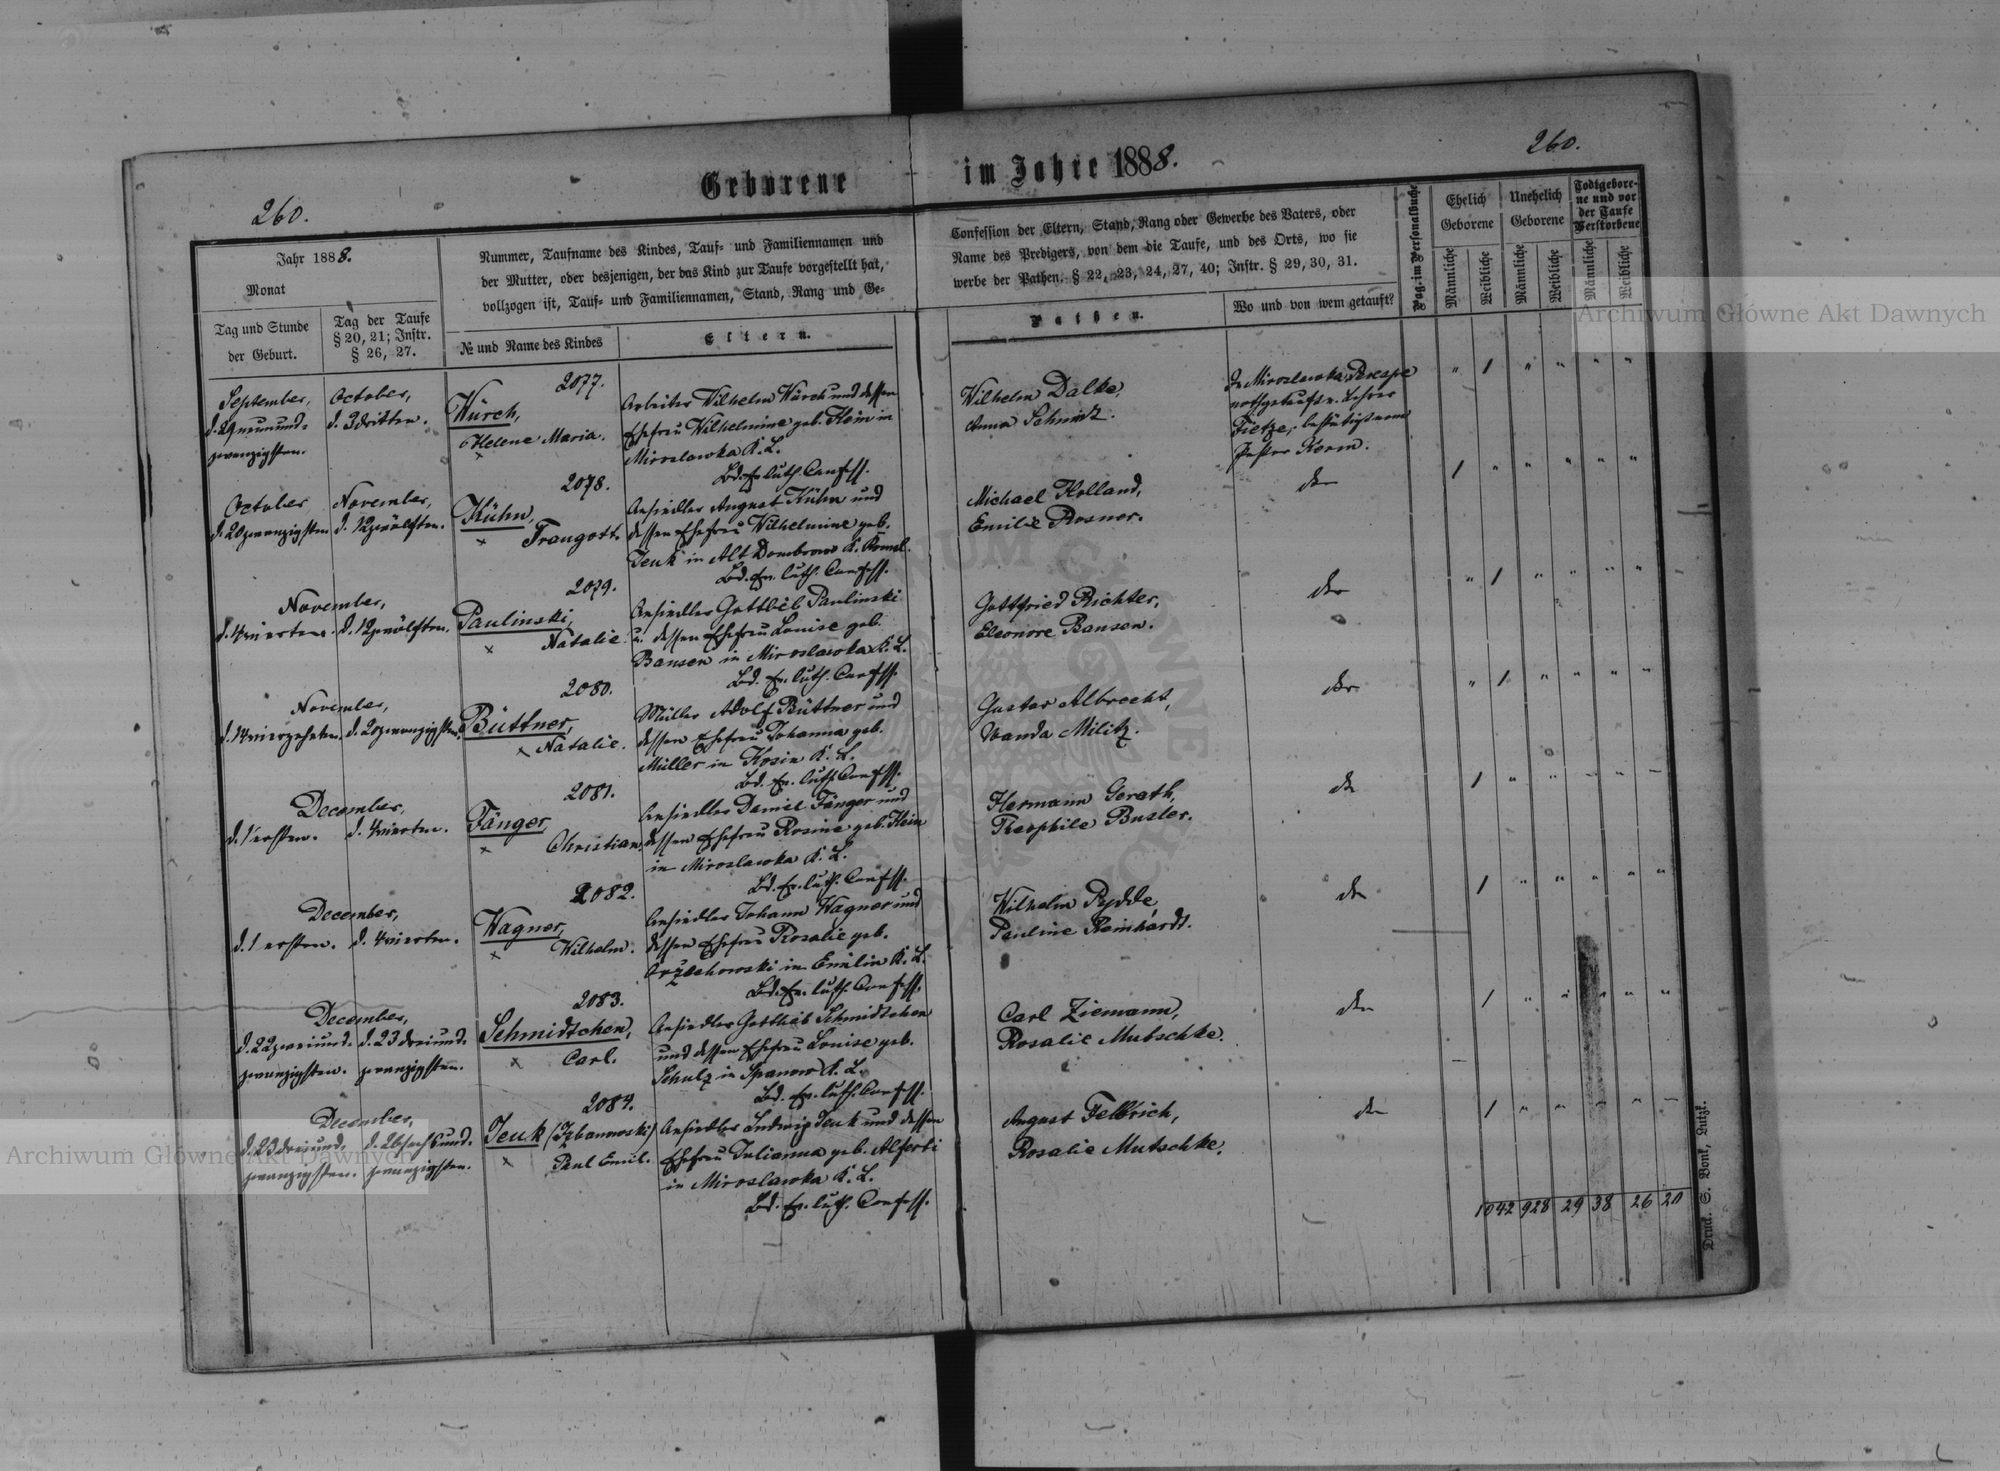 260.
Geborene im Jahre 1888.
260.
Jahr 1888.
Monat
Tag und Stunde
der Geburt.
Tag der Taufe
§ 20, 21; Instr.
§ 26, 27.
Nummer, Taufname des Kindes, Tauf- und Familiennamen und
der Mutter, oder desjenigen, der das Kind zur Taufe vorgestellt hat,
vollzogen ist, Tauf- und Familiennamen, Stand, Rang und Ge-
№ und Name des Kindes
Eltern.
Confession der Eltern, Stand, Rang oder Gewerbe des Vaters, oder
Name des Predigers, von dem die Taufe, und des Orts, wo sie
werbe der Pathen. § 22, 23, 24, 27, 40; Instr. § 29, 30, 31.
Pathen.
Wo und von wem getauft?
Pag. im Personalbuche
Ehelich
Geborene
Unehelich
Geborene
Todtgebore-
ne und vor
der Taufe
Verstorbene
Männliche
Weibliche
Männliche
Weibliche
Männliche
Weibliche
September,
d. 29 neunund-
zwanzigsten.
October,
d. 3 dritten.
2077.
Würch,
Helene Maria.
Arbeiter Wilhelm Würch und dessen
Ehefrau Wilhelmine geb. Klein in
Miroslawka K. L.
Bd. Ev. luth. Confess.
Wilhelm Dalke,
Anna Schmitz.
In Miroslawka
nothgetauft v. Lehrer
Tietze, bestätigt vom
Pastor Kerm.
October
d. 20 zwanzigsten
November,
d. 12 zwölften.
2078.
Kühn,
Traugott.
Ansiedler August Kühn und
dessen Ehefrau Wilhelmine geb.
Jeuk in Alt Dombrow K. Romel.
Bd. Ev. luth. Confess.
Michael Holland,
Emilie Rosner.
November,
d. 4 vierten.
d. 12 zwölften.
2079.
Paulinski,
Natalie
Ansiedler Gottlieb Paulinski
u. dessen Ehefrau Louise geb.
Bansen in Miroslawka K. L.
Bd. Ev. luth. Confess.
Gottfried Richter,
Eleonore Bansen.
November,
d. 14 vierzehnten.
d. 20 zwanzigsten.
2080.
Büttner,
Natalie.
Müller Adolf Büttner und
dessen Ehefrau Johanna geb.
Müller in Kosin K. L.
Bd. Ev. luth. Confess.
Gustav Albrecht,
Wanda Militz.
December,
d. 1 ersten.
d. 4 vierten.
2081.
Fänger
Christian.
Ansiedler Daniel Fänger und
dessen Ehefrau Rosine geb. Klein
in Miroslawka K. L.
Bd. Ev. luth. Confess.
Hermann Gerath,
Theophile Busler.
December,
d. 1 ersten.
d. 4 vierten.
2082.
Wagner,
Wilhelm.
Ansiedler Johann Wagner und
dessen Ehefrau Rosalie geb.
Orzechowski in Emilin K. L.
Bd. Ev. luth. Confess.
Wilhelm Pydde,
Pauline Reinhardt.
December,
d. 22 zweiund-
zwanzigsten.
d. 23 dreiund-
zwanzigsten.
2083.
Schmidtchen,
Carl.
Ansiedler Gottlieb Schmidtchen
und dessen Ehefrau Louise geb.
Schulz in Spanow K. L.
Bd. Ev. luth. Confess.
Carl Ziemann,
Rosalie Mutschke.
December,
d. 23 dreiund-
zwanzigsten.
d. 26 sechsund-
zwanzigsten.
2084.
Jeuk (Izbanowski)
Paul Emil.
Ansiedler Ludwig Jeuk und dessen
Ehefrau Julianna geb. Alferti
in Miroslawka K. L.
Bd. Ev. luth. Confess.
August Felbrich,
Rosalie Mutschke.
1042 928 29 38 26 20
Druck. S. Bonk, Lutzk.
Archiwum Główne Akt Dawnych
Archiwum Główne Akt Dawnych